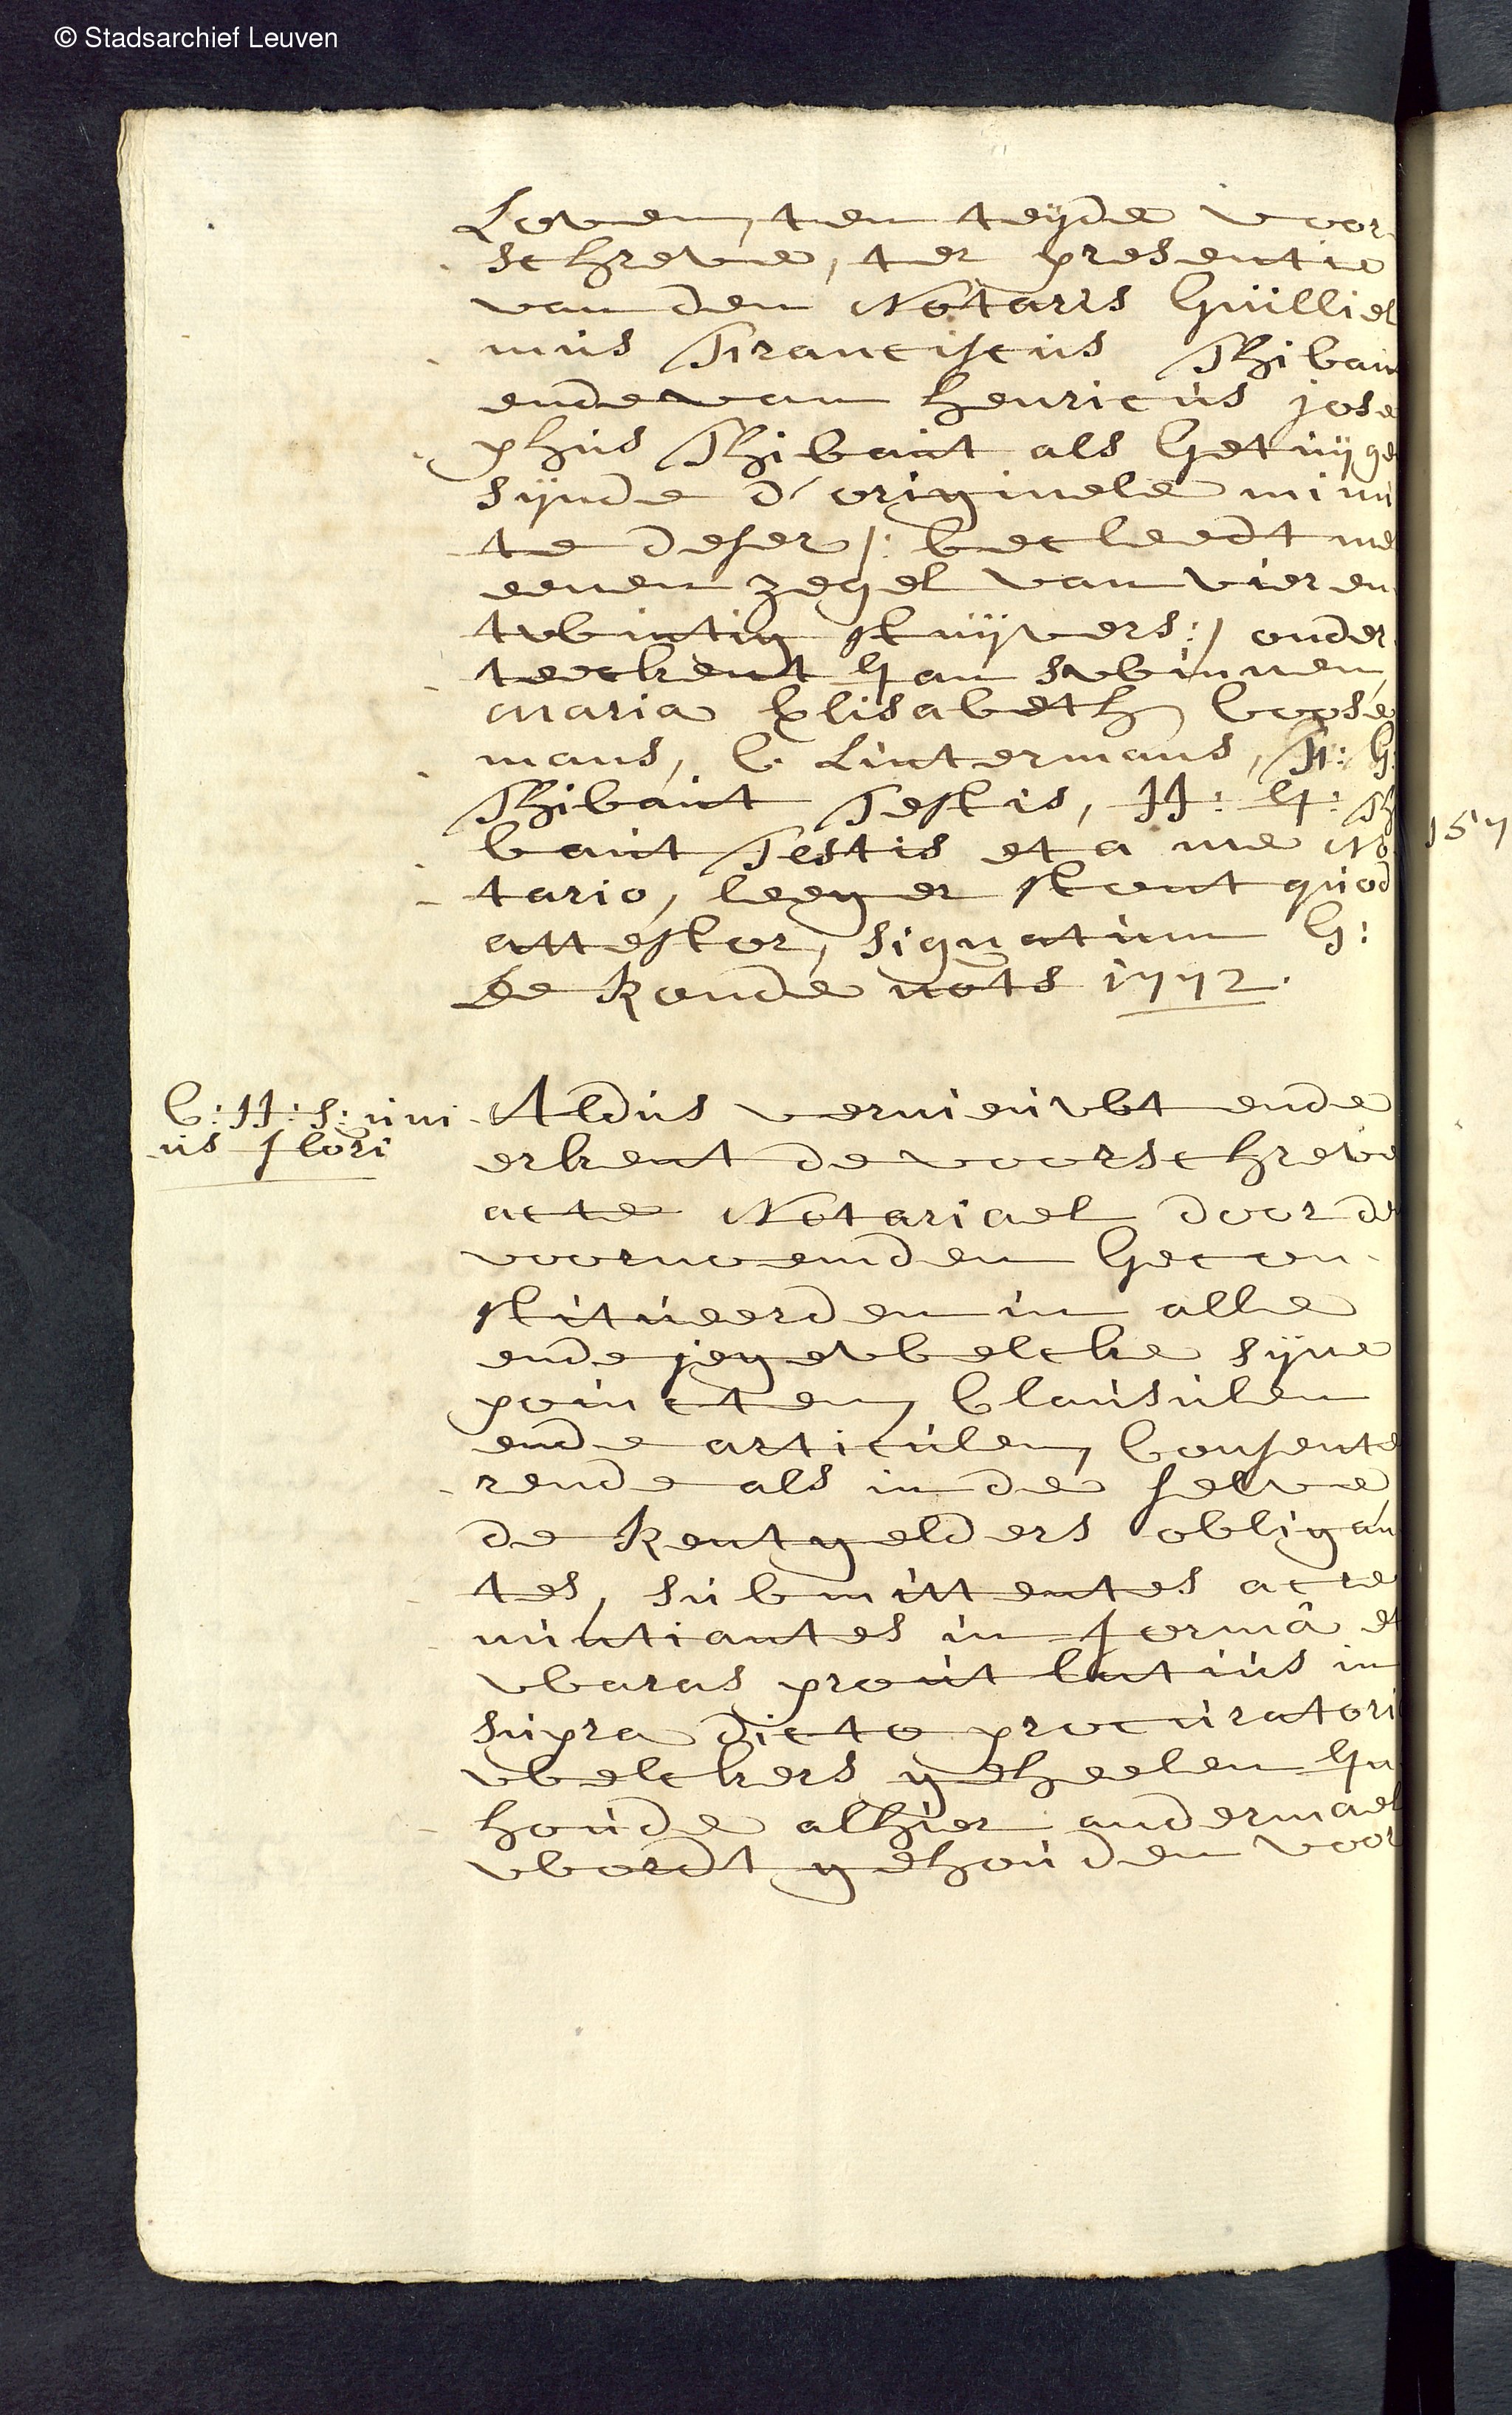 © Stadsarchief Leuven
Loven, ten teyde voor
schreve, ter presentie
van den Notaris Guilliel
mus Franciscus Thibau
ende van Henricus jose
phus Thibaut als Getuyge
synde d'originele minu
te deser /: becleedt me
eenen zegel van vier en
twintig stuyvers :/ onder
teeckent J an Swinnen,
Maria Elisabeth Coose
mans, C. Lintermans, F: G:
Thibaut Testis, H: J: Th
baut Testis et a me No
tario, leeger stont quod
attestor, signatum G:
De Ronde nots 1772.
C: H: S: uni
us flori
Aldus vernieuwt ende
erkent de voorschreve
acte Notariael door de
voornoemden Gecon
stitueerden in alle
ende jegewelcke syne
poincten, Clausulen
ende articulen, Consente
rende als in de selve
de Rentgelders obligan
tes, submittentes ac re
nuntiantes in formâ et
waras prout latius in
supra dicto procuratori
welckers geheelen In
houde alhier andermael
wordt gehouden voor
157